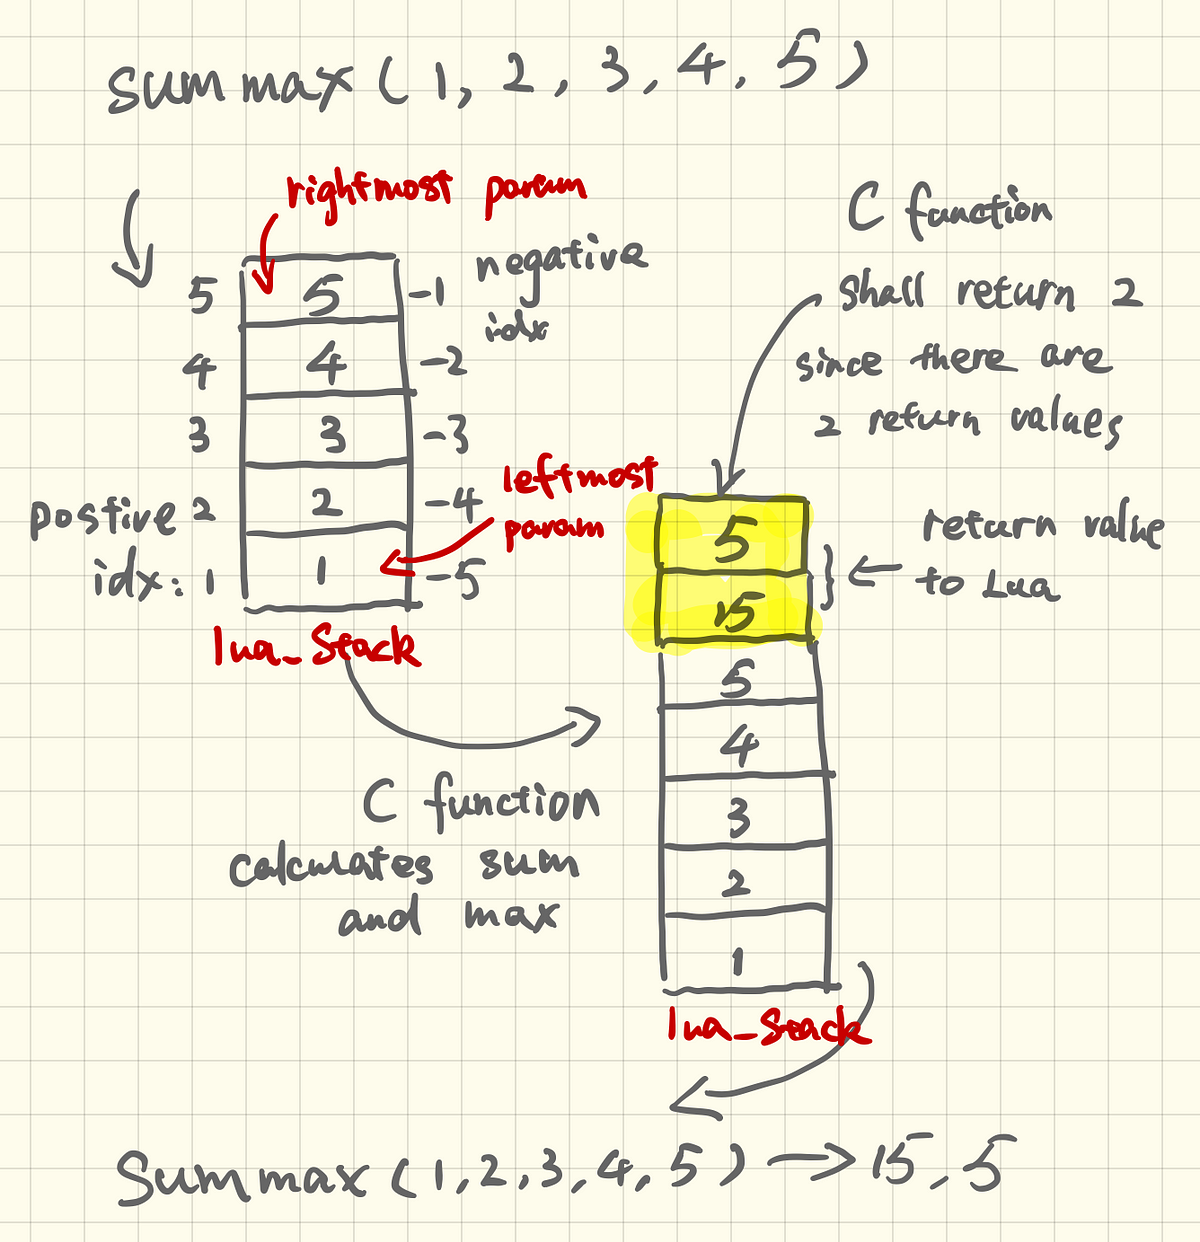 summax (1, 2, 3, 4, 5)
rightmost param
negative
idx
5 5 -1
4 4 -2
3 3 -3
postive 2 2 -4
idx: 1 1 -5
leftmost
param
lua_Stack
C function
calculates sum
and max
C function
shall return 2
since there are
2 return values
5
15
return value
to Lua
5
4
3
2
1
lua_Stack
Summax (1,2,3,4,5) → 15, 5